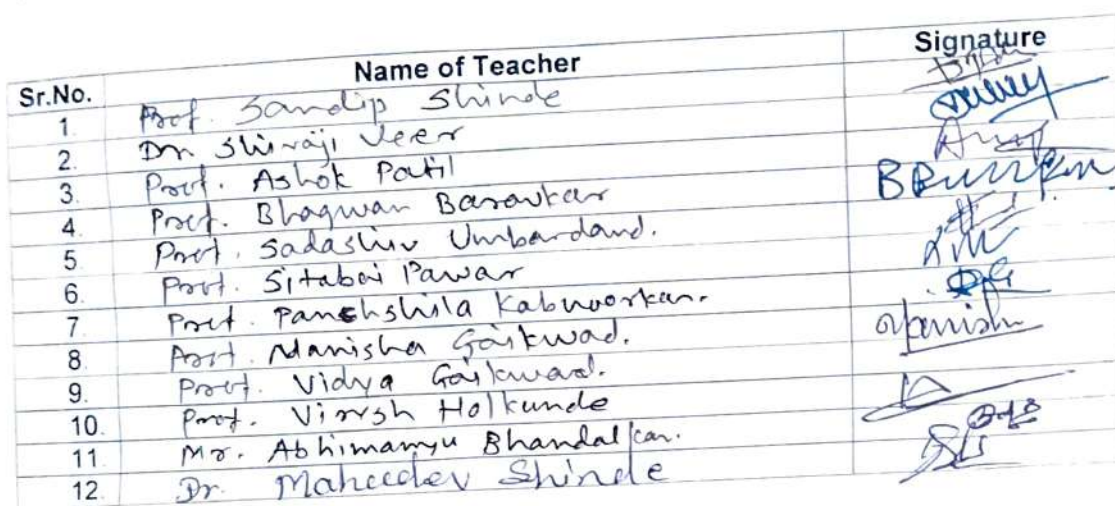 Sr.No. Name of Teacher Signature
1. Prof. Sandip Shinde
2. Dr. Shivaji Veer
3. Prof. Ashok Patil
4. Prof. Bhagwan Baravkar
5. Prof. Sadashiv Umbardand.
6. Prof. Sitabai Pawar
7. Prof. Panchshila Kabnoorkar.
8. Prof. Manisha Gaikwad.
9. Prof. Vidya Gaikwad.
10. Prof. Holkunde
11 Mr. Abhimanyu Bhandalkar.
12. Dr. Mahadev Shinde